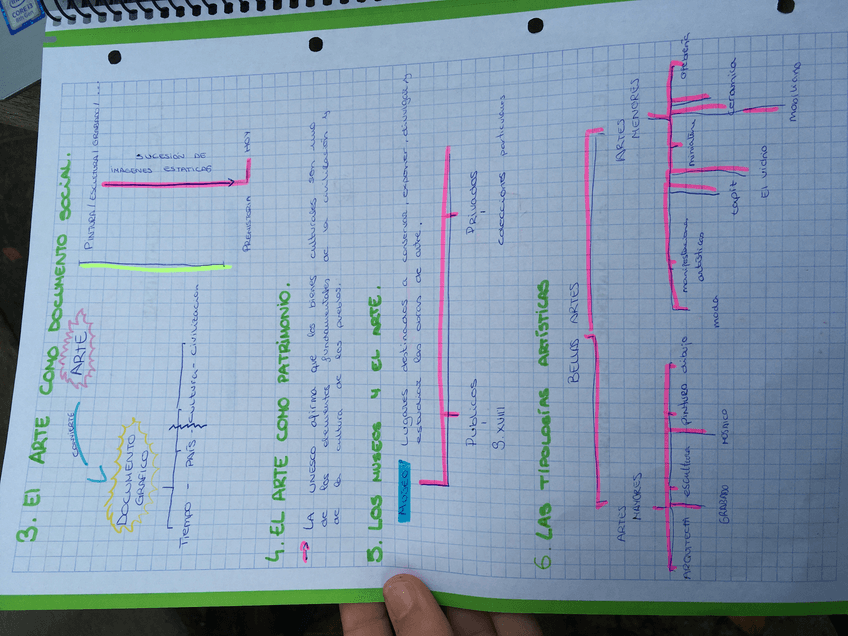 3. El ARTE COMO DOCUMENTO SOCIAL.
ARTE
CONVIERTE
DOCUMENTO
GRÁFICO
Tiempo - PAÍS - Cultura - civilización
PINTURA / ESCULTURA / GRABADO / ...
SUCESIÓN DE
IMÁGENES ESTATICAS
PREHISTORIA
HOY
4. EL ARTE COMO PATRIMONIO.
LA UNESCO afirma que los bienes culturales son uno
de los elementos fundamentales de la civilización y
de la cultura de los
5. LOS MUSEOS Y EL ARTE.
Museos Lugares destinados a conservar, exponer, divulgar y
estudiar las obras de arte.
Públicos
S. XVIII
Privados
colecciones particulares
6. LAS TIPOLOGÍAS ARTÍSTICAS
BELLAS ARTES
ARTES
MAYORES
ARQUITECTU
escultura
pintura
dibujo
GRABADO
ARTES
MENORES
manifestaciones
artísticas
miniatura
orfebrería
moda
tapiz
El vidrio
cerámica
Mobiliario